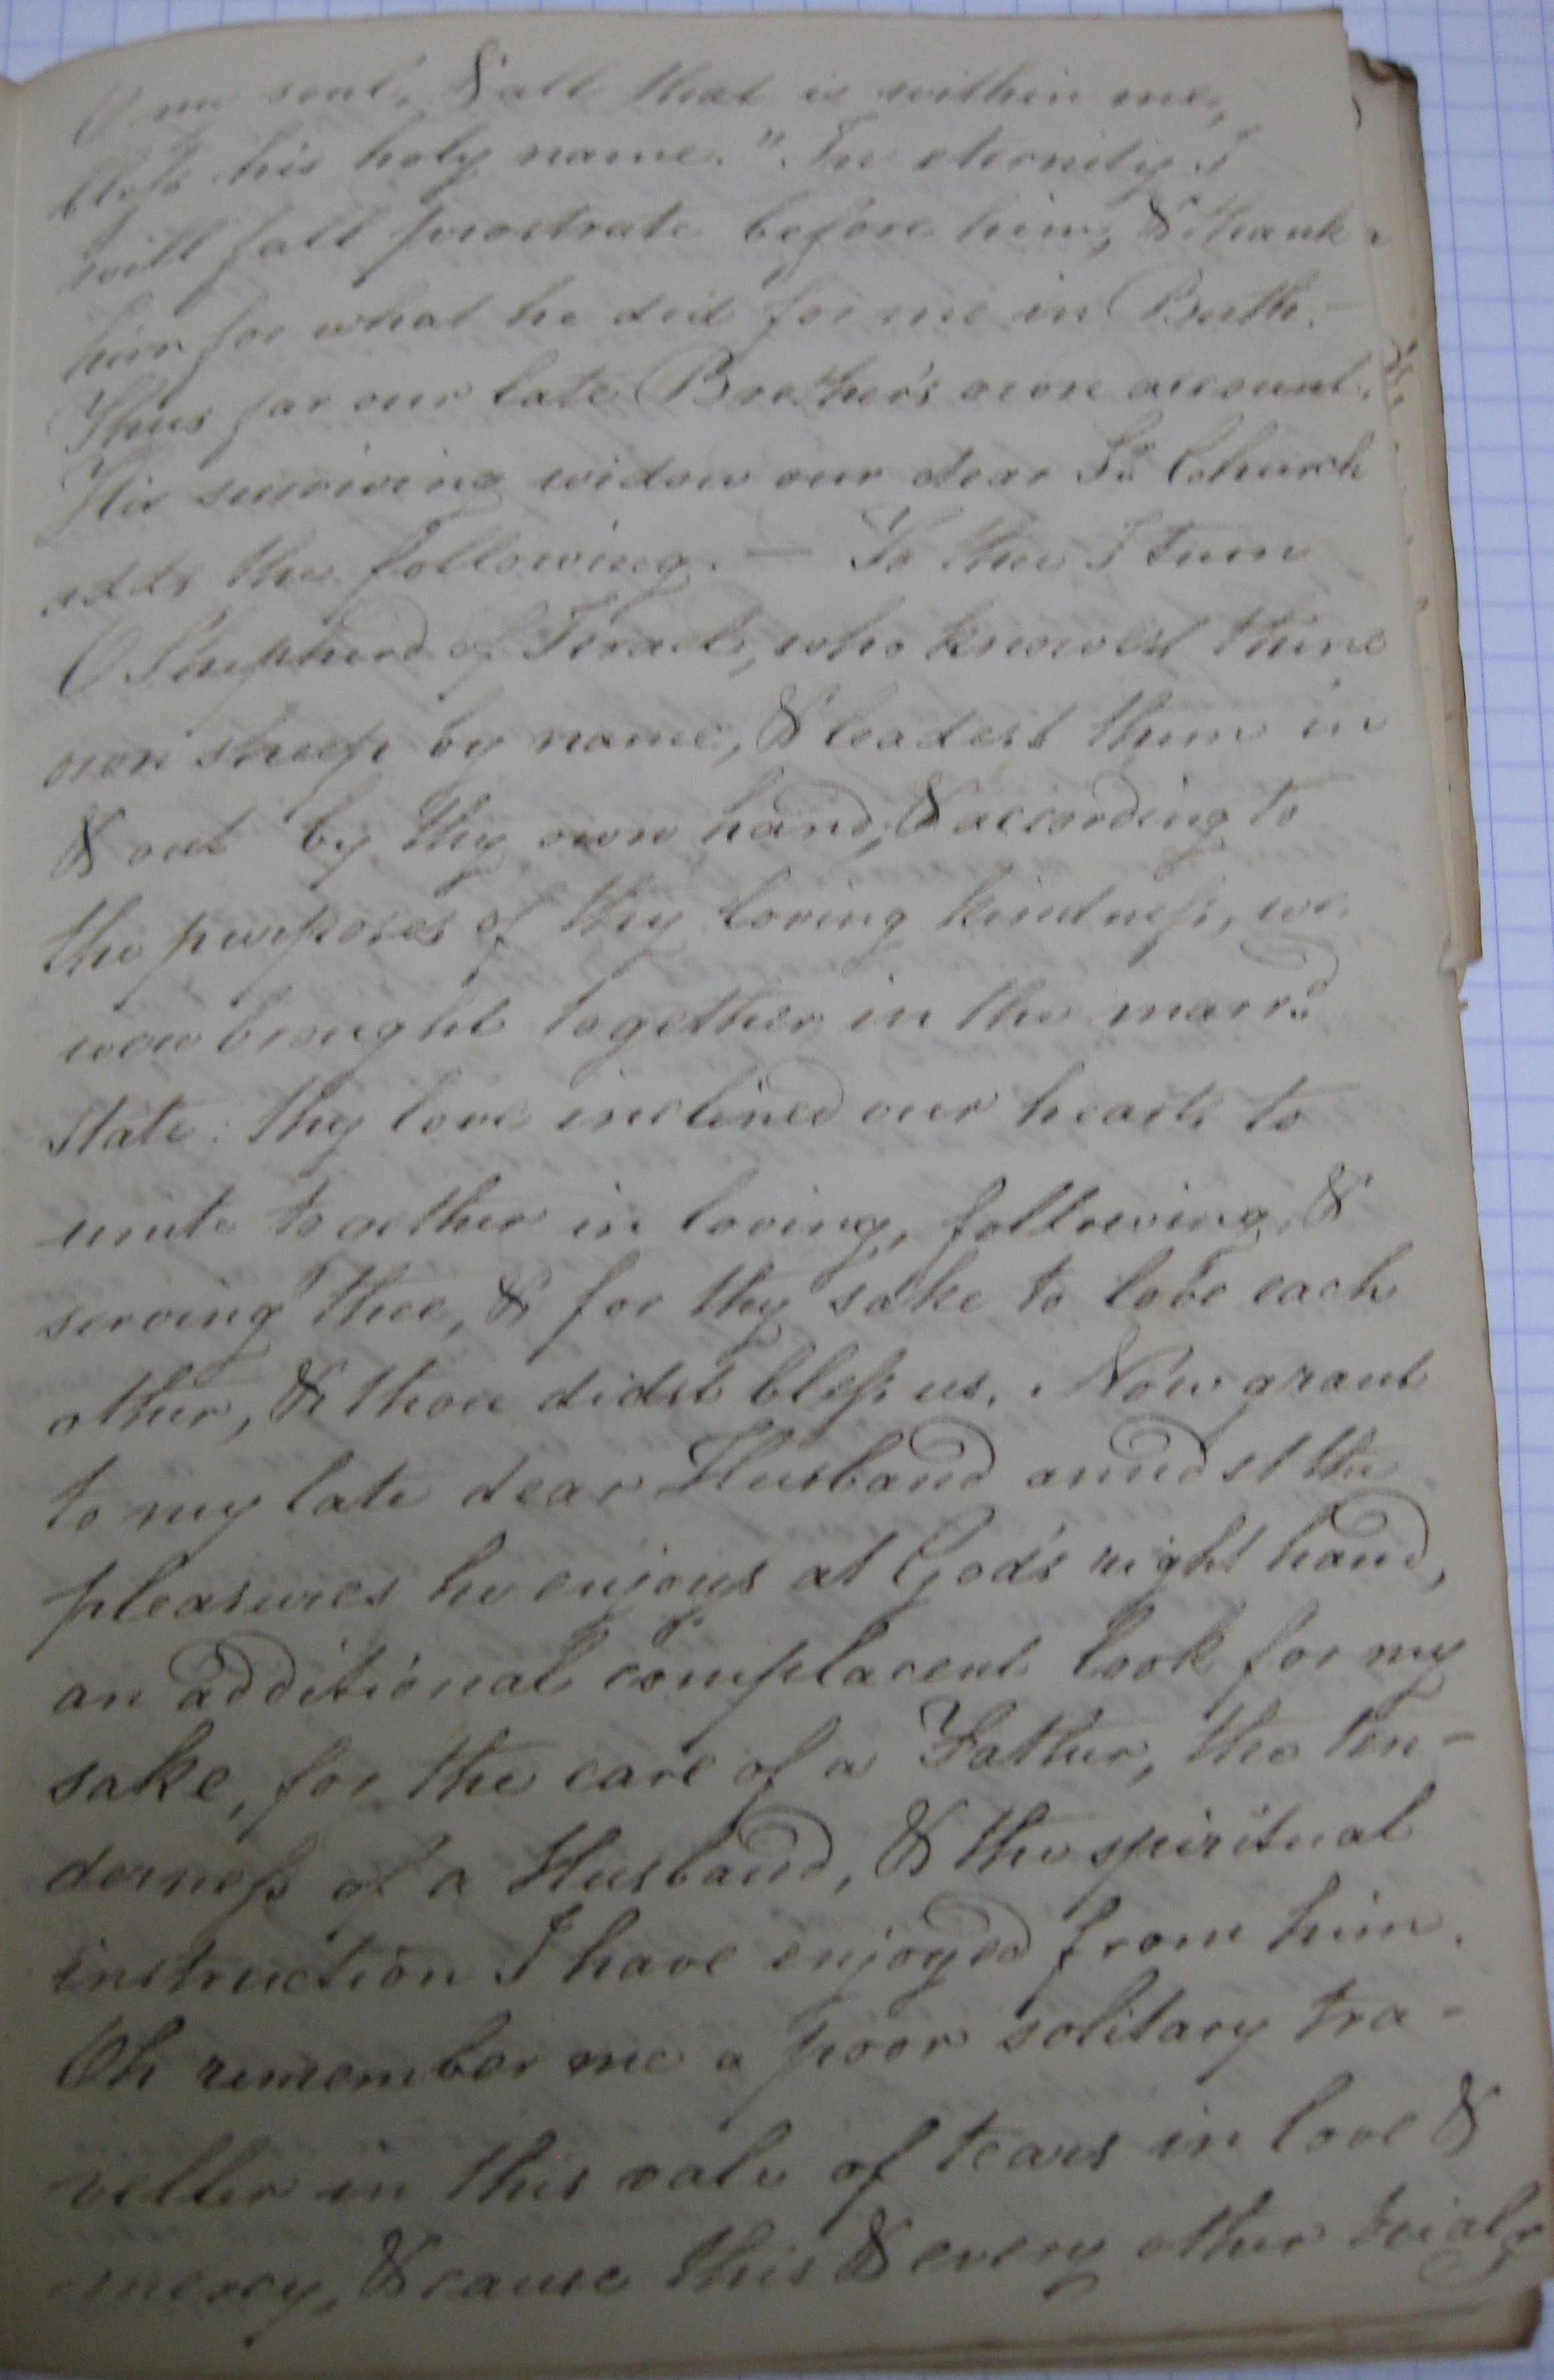 O my soul, & all that is within me,
bless his holy name." In eternity I
will fall prostrate before him, & thank
him for what he did for me in Bath.—
Thus far our late Brother's own account.
His surviving widow our dear Sr. Church
adds the following. — To thee I turn
O Shepherd of Israel, who knowest thine
own sheep by name, & leadest them in
& out by thy own hand; & according to
the purposes of thy loving kindness, we
were brought together in the marr.d
state: thy love inclined our hearts to
unite together in loving, following, &
serving Thee, & for thy sake to love each
other, & thou didst bless us. Now grant
to my late dear Husband amidst the
pleasures he enjoys at God's right hand,
an additional complacent look for my
sake, for the care of a Father, the ten-
derness of a Husband, & the spiritual
instruction I have enjoyed from him.
Oh remember me a poor solitary tra-
veller in this vale of tears in love &
mercy, & cause this & every other trial,